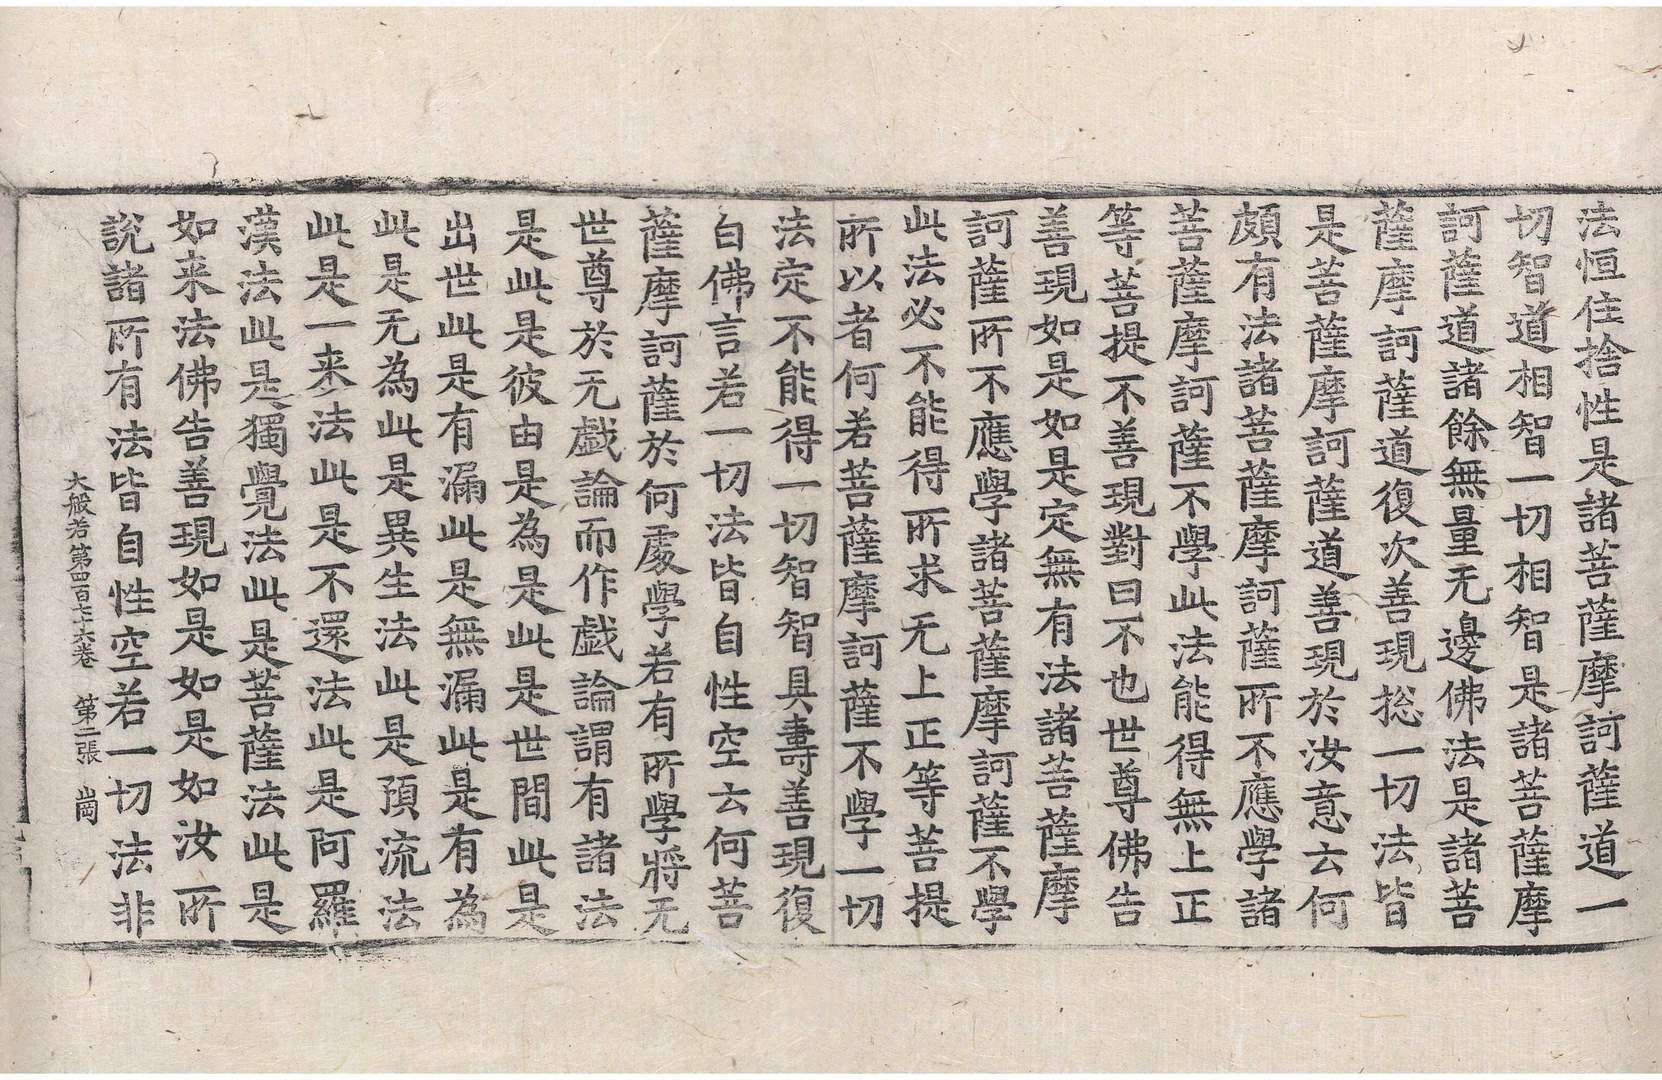 法恒住捨性是諸菩薩摩訶薩道一
切智道相智一切相智是諸菩薩摩
訶薩道諸餘無量无邊佛法是諸菩
薩摩訶薩道復次善現捴一切法皆
是菩薩摩訶薩道善現於汝意云何
頗有法諸菩薩摩訶薩所不應學諸
菩薩摩訶薩不學此法能得無上正
等菩提不善現對曰不也世尊佛告
善現如是如是定無有法諸菩薩摩
訶薩所不應學諸菩薩摩訶薩不學
此法必不能得所求无上正等菩提
所以者何若菩薩摩訶薩不學一切
法定不能得一切智智具壽善現復
白佛言若一切法皆自性空云何菩
薩摩訶薩於何處學若有所學將无
世尊於无戲論而作戲論謂有諸法
是此是彼由是為是此是世間此是
出世此是有漏此是無漏此是有為
此是无為此是異生法此是預流法
此是一来法此是不還法此是阿羅
漢法此是獨覺法此是菩薩法此是
如来法佛告善現如是如是如汝所
說諸所有法皆自性空若一切法非
大般若第四百七十六卷 第二張 崗